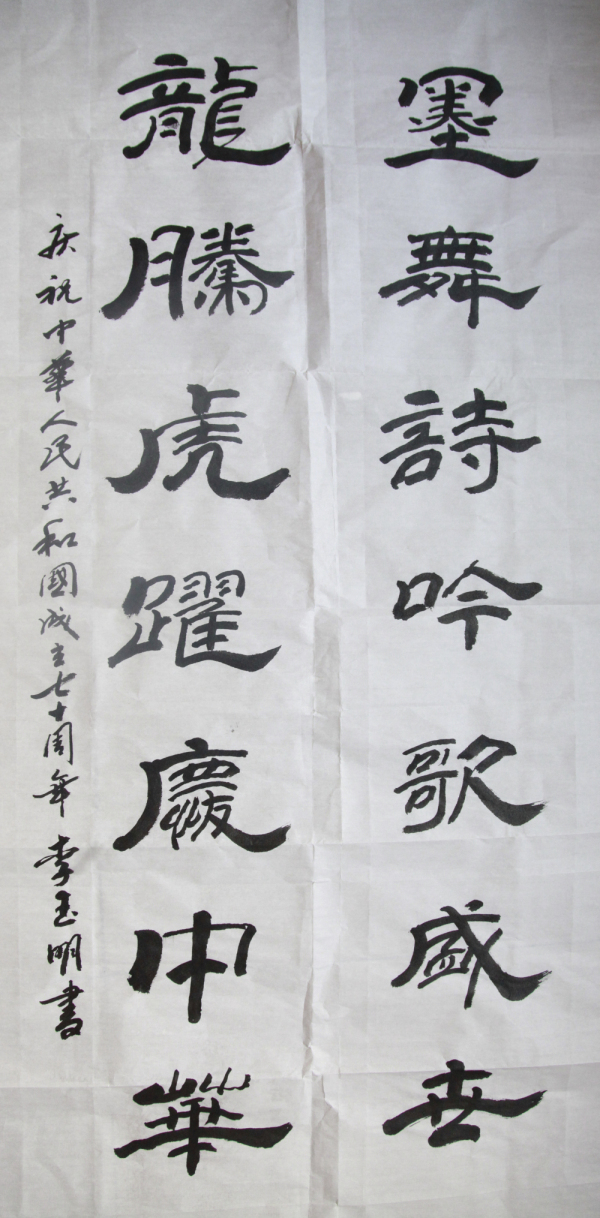 墨舞詩吟歌盛世
龍騰虎躍慶中華
庆祝中华人民共和國成立七十周年 李玉明書